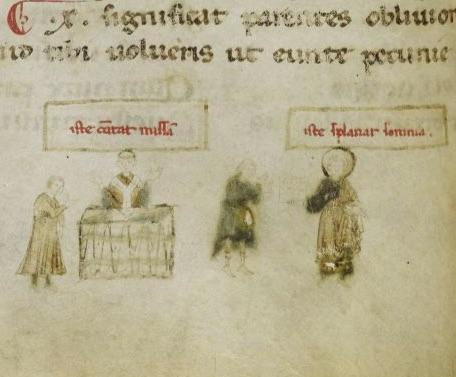 X. significat parentes oblivion
uid tibi volueris ut eunte pecunie
iste cantat missam
iste splanat somnia.